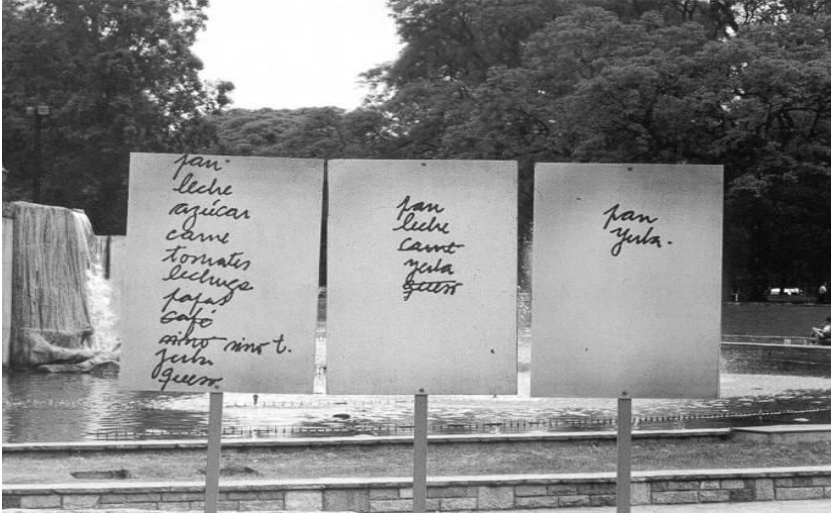 pan
leche
azúcar
carne
tomates
lechuga
papas
café
vino vino t.
yerba
queso.
pan
leche
carne
yerba
queso
pan
yerba.